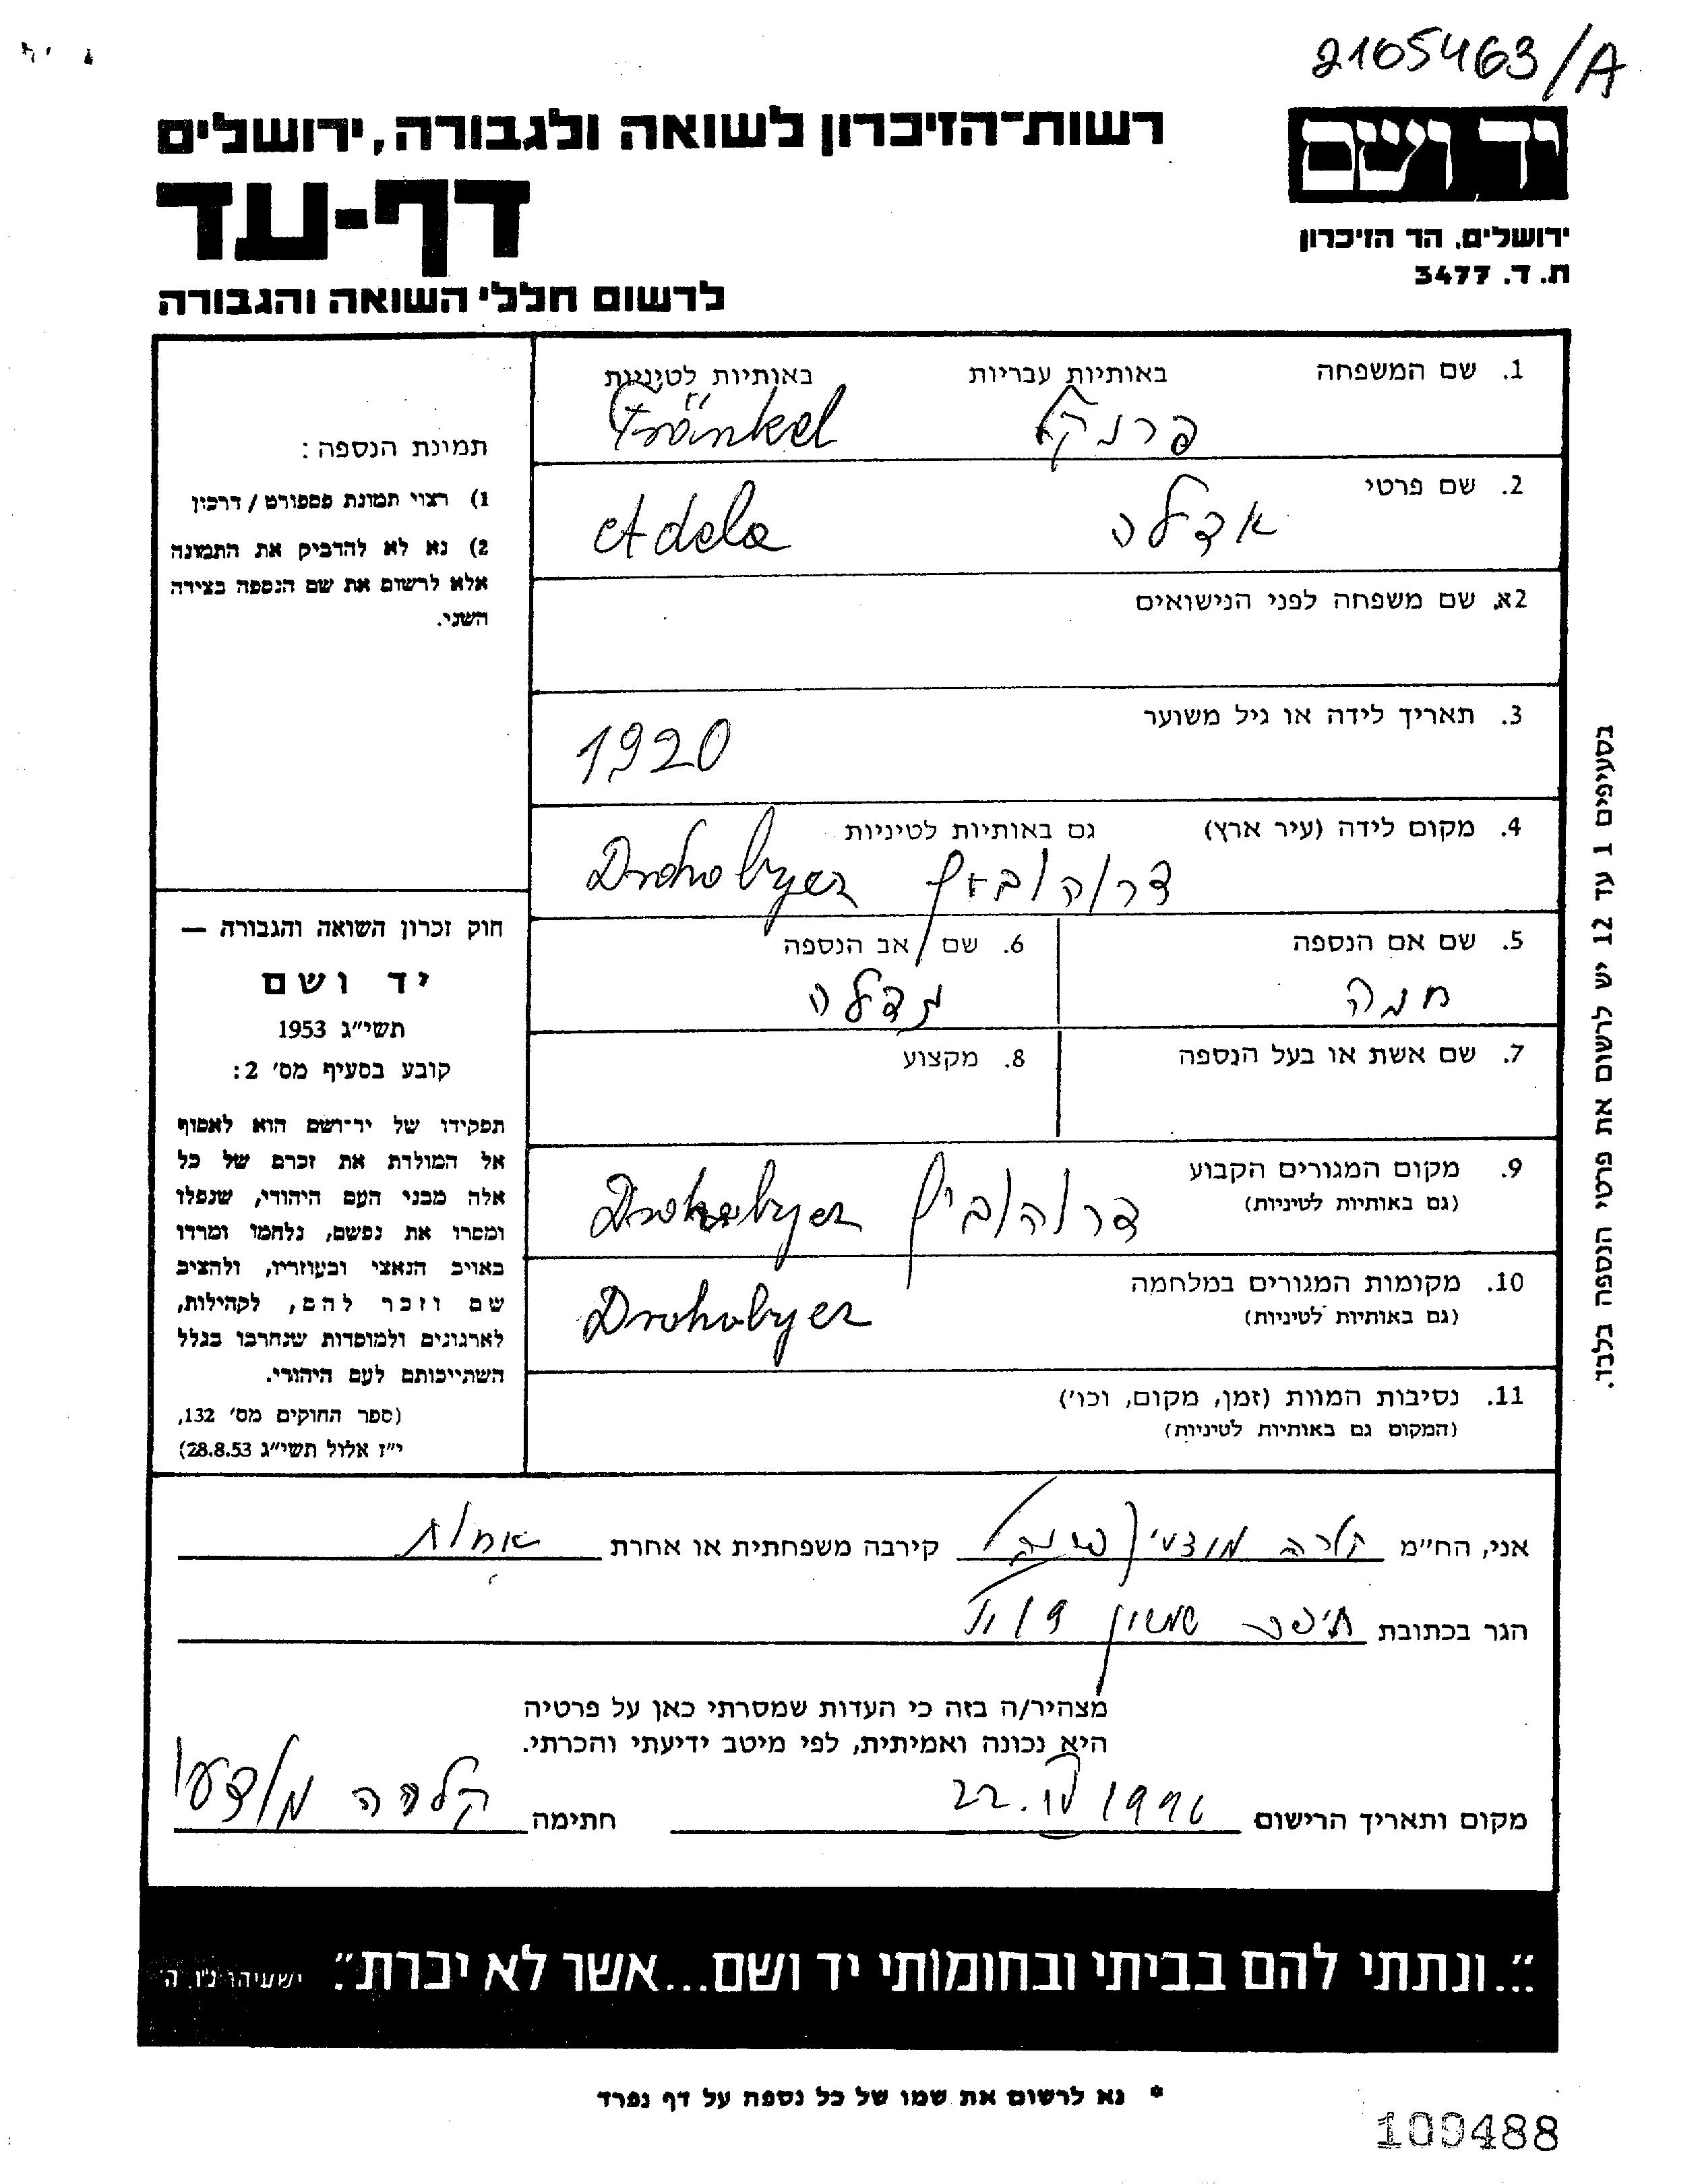 2105463/A
יד ושם
רשות-הזיכרון לשואה ולגבורה, ירושלים
דף-עד
ירושלים, הר הזיכרון
ת. ד. 3477
לרשום חללי השואה והגבורה
1. שם המשפחה באותיות עבריות באותיות לטיניות
פרנקל Fränkel
2. שם פרטי
אדלה Adela
2א. שם משפחה לפני הנישואים
3. תאריך לידה או גיל משוער
1920
4. מקום לידה (עיר ארץ) גם באותיות לטיניות
Drohobycz
5. שם אם הנספה
חנה
6. שם אב הנספה
7. שם אשת או בעל הנספה
8. מקצוע
9. מקום המגורים הקבוע
(גם באותיות לטיניות)
דרוהוביץ Drohobycz
10. מקומות המגורים במלחמה
(גם באותיות לטיניות)
Drohobycz
11. נסיבות המוות (זמן, מקום, וכו')
(המקום גם באותיות לטיניות)
תמונת הנספה:
1) רצוי תמונת פספורט / דרכון
2) נא לא להדביק את התמונה
אלא לרשום את שם הנספה בצידה
השני.
חוק זכרון השואה והגבורה —
יד ושם
תשי״ג 1953
קובע בסעיף מס' 2:
תפקידו של יד-ושם הוא לאסוף
אל המולדת את זכרם של כל
אלה מבני העם היהודי, שנפלו
ומסרו את נפשם, נלחמו ומרדו
באויב הנאצי ובעוזריו, ולהציב
שם וזכר להם, לקהילות,
לארגונים ולמוסדות שנחרבו בגלל
השתייכותם לעם היהודי.
(ספר החוקים מס' 132,
י״ז אלול תשי״ג 28.8.53)
בסעיפים 1 עד 12 יש לרשום את פרטי הנספה בלבד.
אני, הח״מ קלרה מודעי קירבה משפחתית או אחרת אחות
הגר בכתובת חיפה שמשון
מצהיר/ה בזה כי העדות שמסרתי כאן על פרטיה
היא נכונה ואמיתית, לפי מיטב ידיעתי והכרתי.
מקום ותאריך הרישום חתימה קלרה מודעי
״...ונתתי להם בביתי ובחומותי יד ושם...אשר לא יכרת״. ישעיהו נ״ו, ה'
* נא לרשום את שמו של כל נספה על דף נפרד
109488